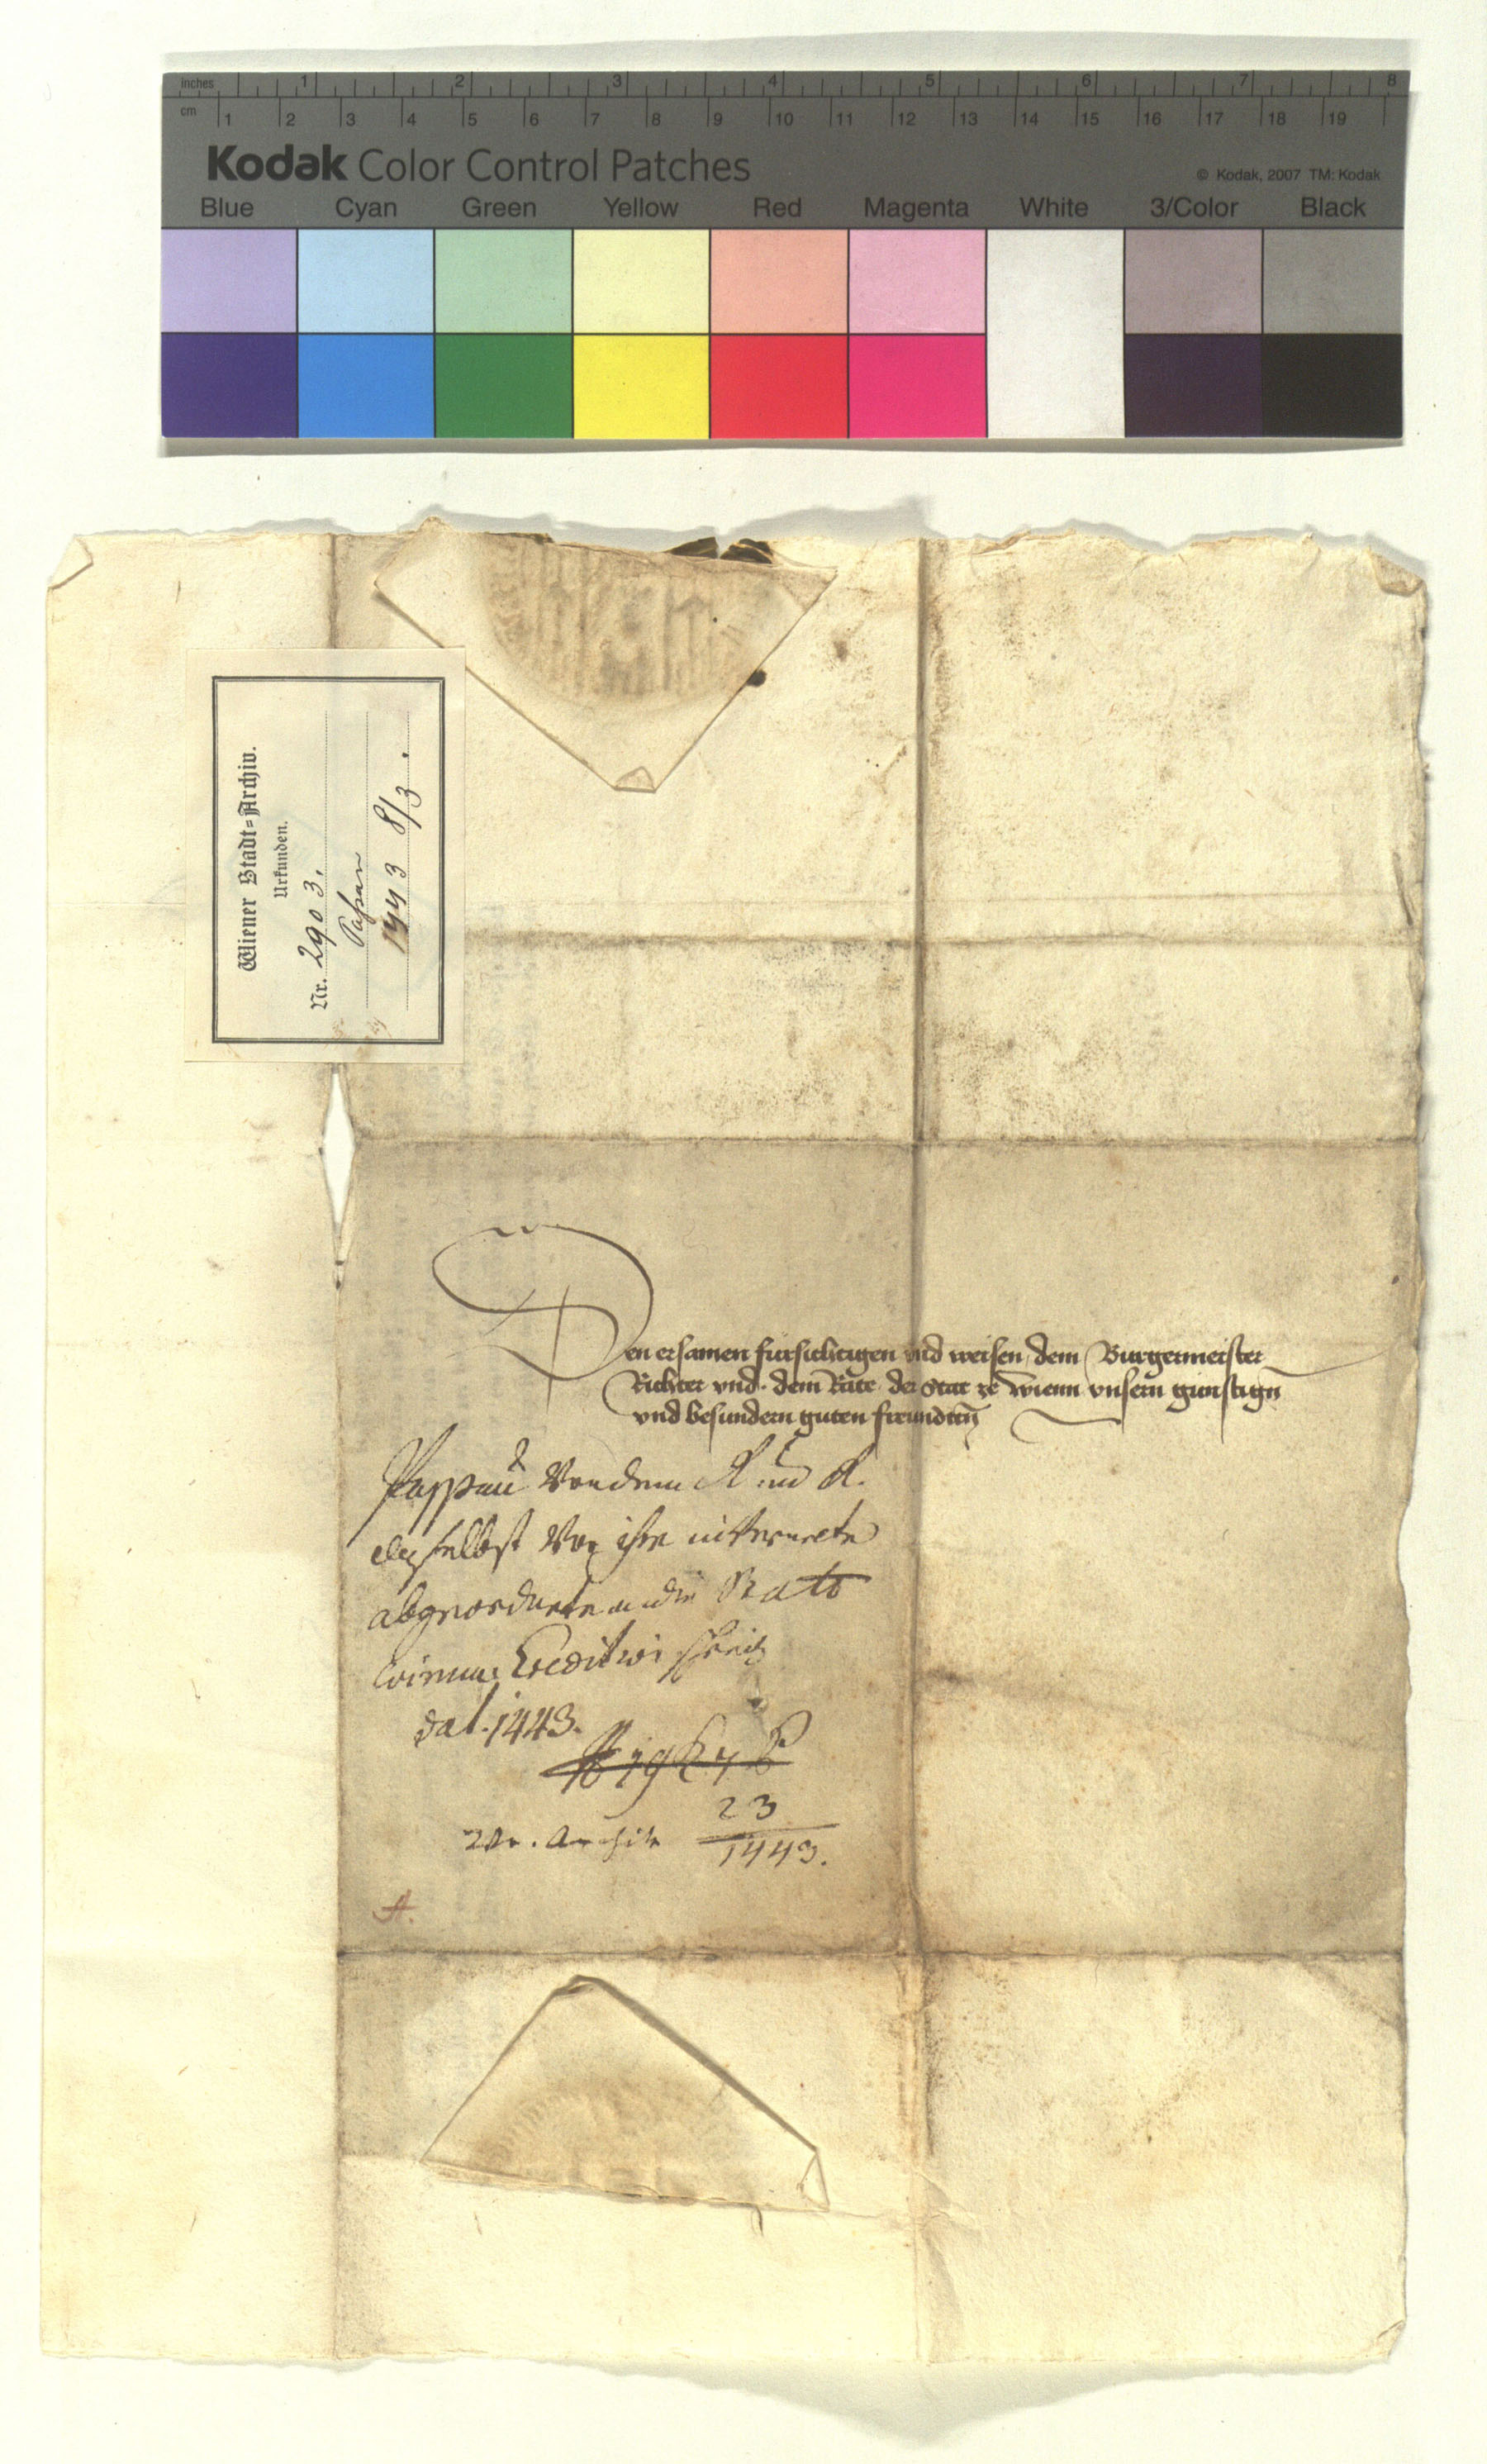 inches 1 2 3 4 5 6 7 8
cm 1 2 3 4 5 6 7 8 9 10 11 12 13 14 15 16 17 18 19
Kodak Color Control Patches
© Kodak, 2007 TM: Kodak
Blue Cyan Green Yellow Red Magenta White 3/Color Black
Wiener Stadt=Archiv.
Urkunden.
Nr. 2903.
Passau
1443 8/3.
Den ersamen fürsichtigen vnd weisen dem Burgermeister
Richter vnd dem Rate der Stat ze Wienn vnsern gunstign
vnd besundern guten freundten
Passau Von dem R. und R.
daselbst Vor ihre
abgeordnete an die Statt
Creditiv
dat. 1443.
23
1443.
A.